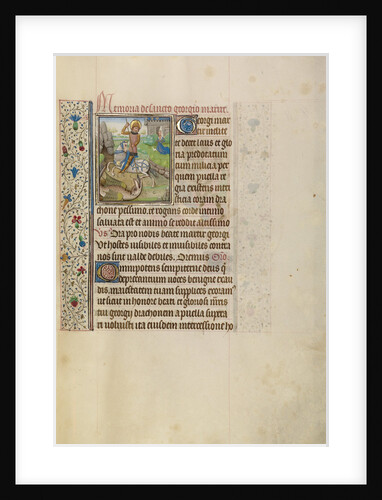 Memoria de sancto georgio martire
Georgi mar
tir inclite
te decet laus et glo
ria predotatum
tum milicia per
quem puella re
gia existens in tri
sticia coram dra
chone pessimo et rogans corde intimo
saluata est et animo se reddit altissimo
Vs Ora pro nobis beate martir georgi
Ut hostes visibiles et invisibiles contra
nos sint valde debiles Oremus Oro
Omnipotens sempiterne deus q
deprecantium voces benigne exau
dis maiestatem tuam supplices exoram
ut sicut in honore beati et gloriosi mris
tui georgii drachonem a puella supera
ri voluisti ita eiusdem intercessione ho